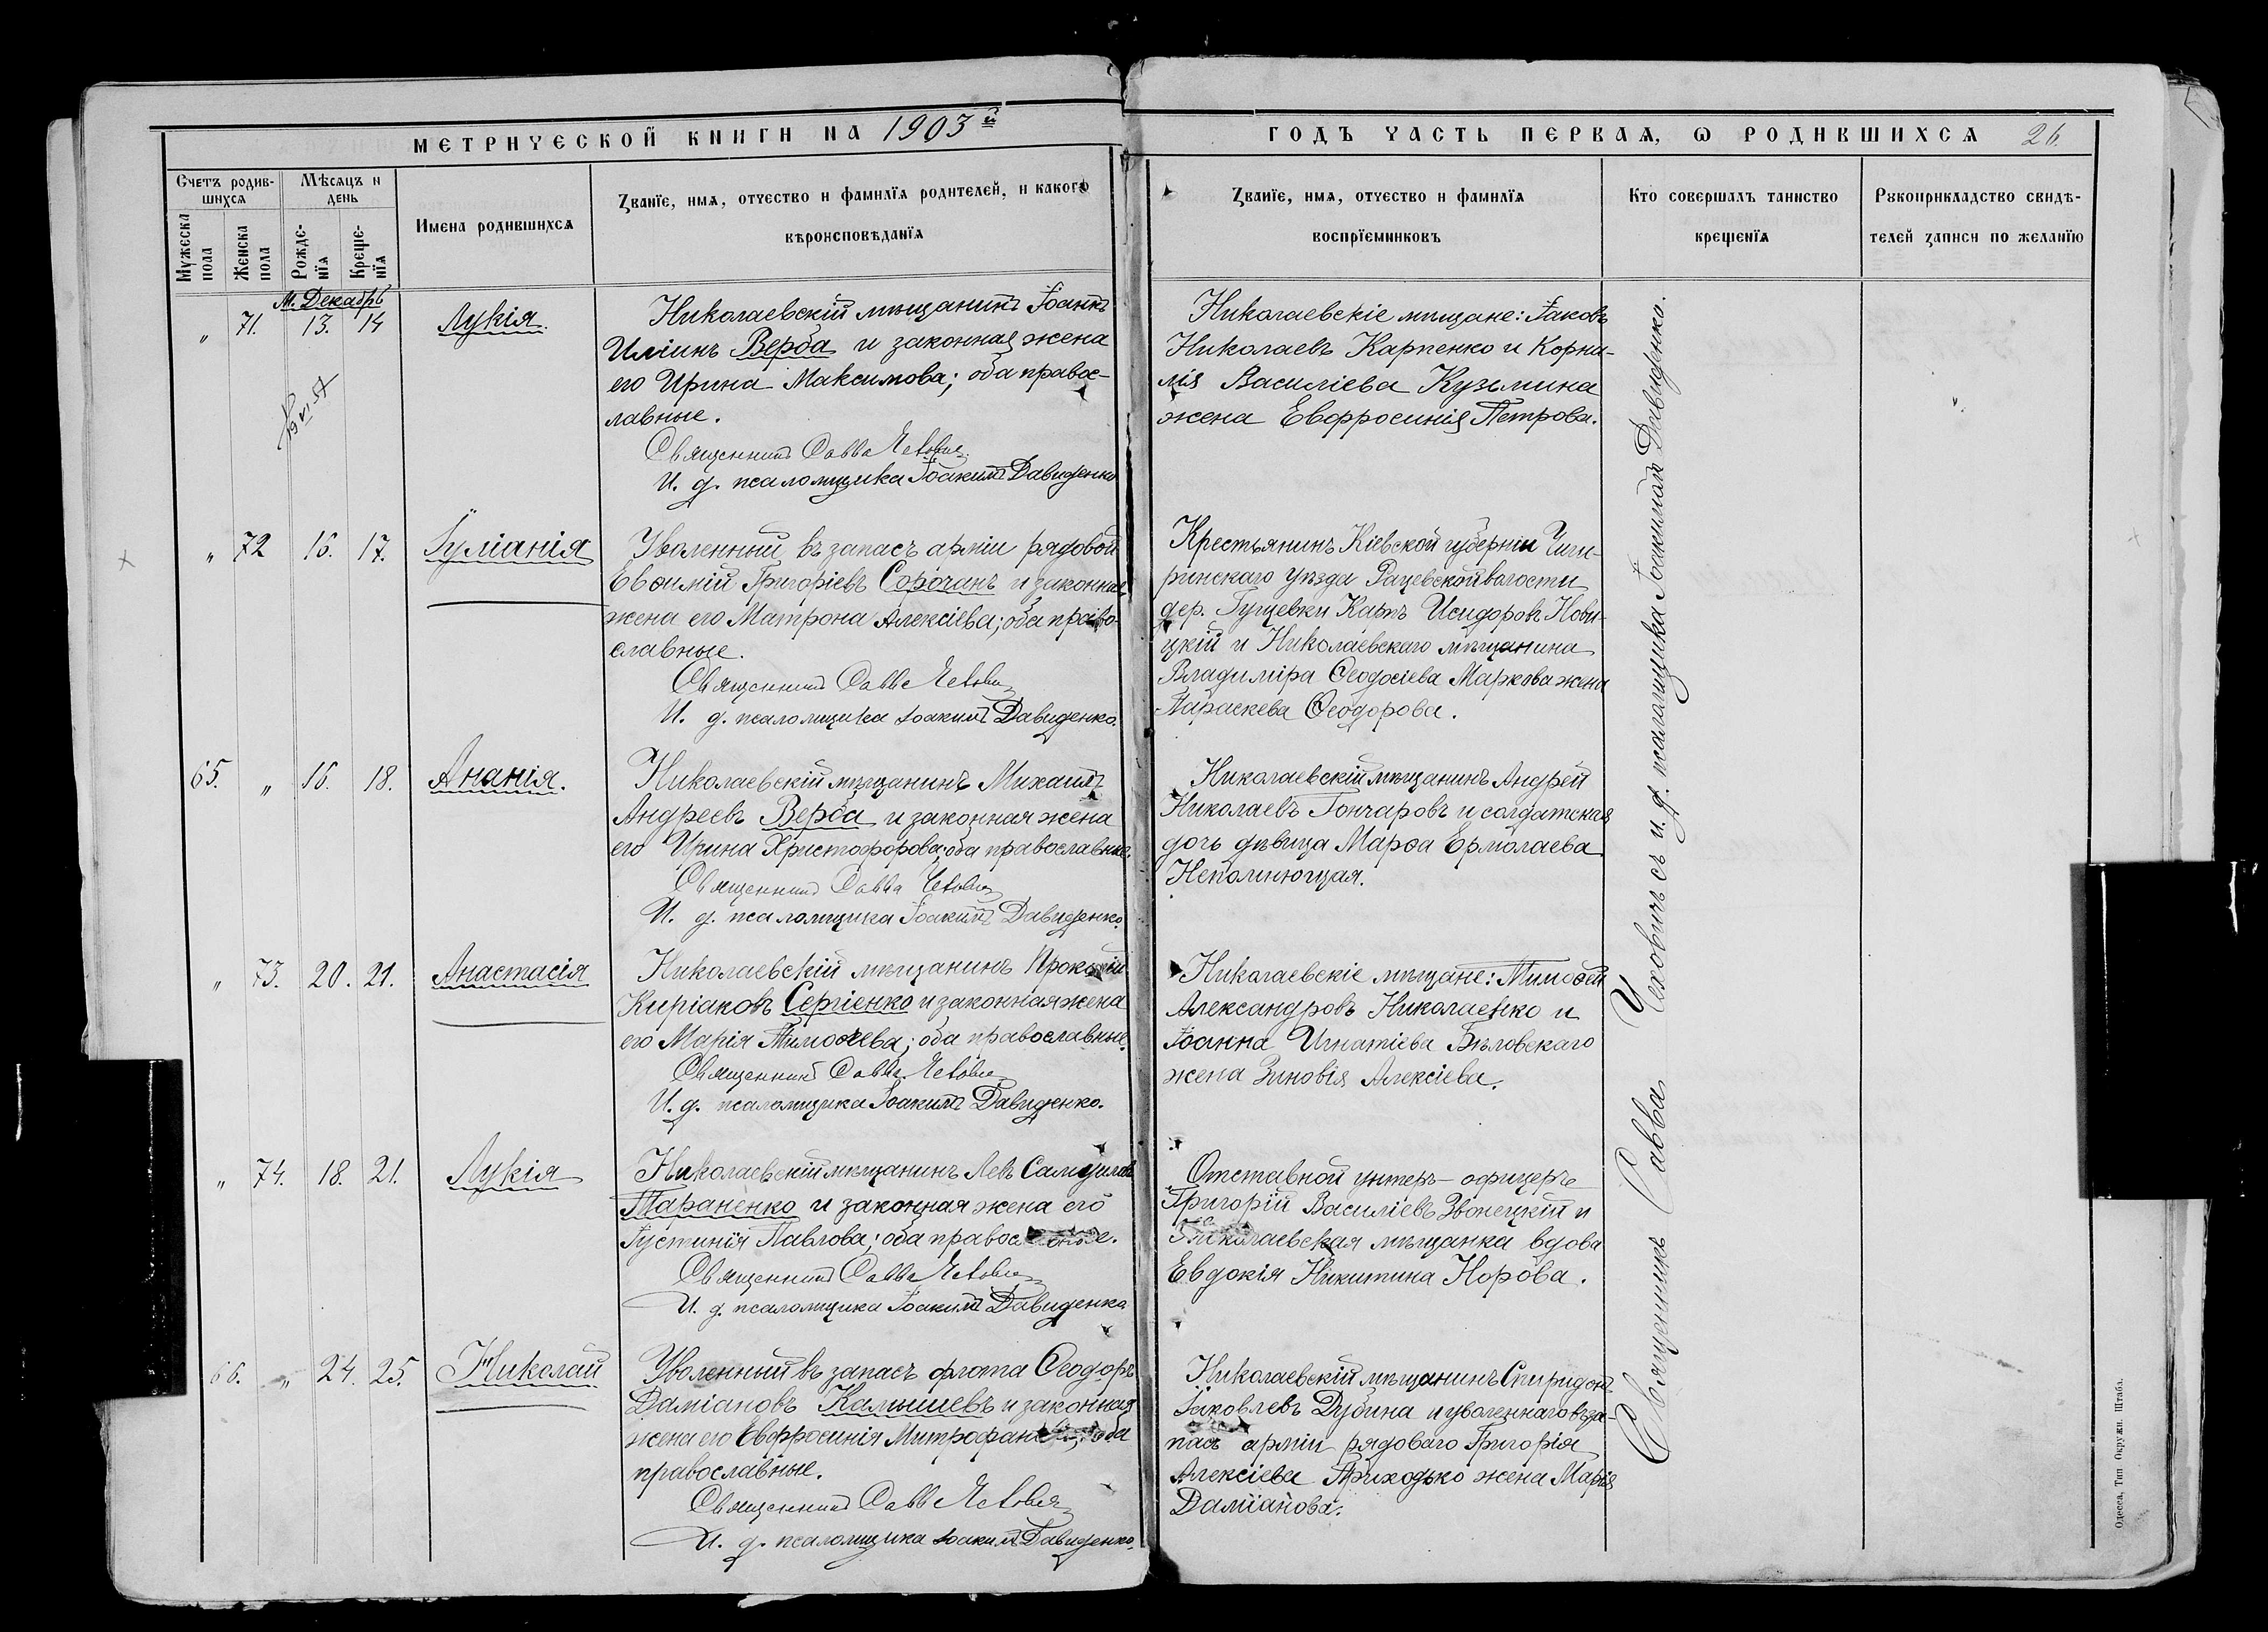 МЕТРИЧЕСКОЙ КНИГИ НА 1903й
ГОДЪ ЧАСТЬ ПЕРВАЯ, Ѡ РОДИВШИХСЯ 26.
Счетъ родив-
шихся
Мужеска пола
Женска пола
Мѣсяцъ и
день
Рожде-
нїя
Креще-
нїя
Имена родившихся
Званїе, имя, отчество и фамилїя родителей, и какого
вѣроисповѣданїя
Званїе, имя, отчество и фамилїя
воспрїемниковъ
Кто совершалъ таинство
крещенїя
Рукоприкладство свидѣ-
телей записи по желанїю
М. Декабрь
„ 71. 13. 14 Лукія.
Николаевскій мѣщанинъ Іоаннъ
Иліинъ Верба и законная жена
его Ирина Максимова; оба правос-
лавные.
Священникъ Савва Чехович
И. д. псаломщика Іоакимъ Давиденко
Николаевскіе мѣщане: Іаковъ
Николаевъ Карпенко и Корни-
лія Василіева Кузьмина
жена Евфросинія Петрова.
„
„ 72 16. 17. Іуліанія
Уволенный въ запасъ арміи рядовой
Евѳимій Григоріевъ Сорочанъ и законная
жена его Матрона Алексіева; оба право-
славные.
Священникъ Савва Чехович
И. д. псаломщика Іоакимъ Давиденко.
Крестьянинъ Кіевской губерніи Чиги-
ринскаго уѣзда Рацевской волости
дер. Гущевки Карпъ Исидоровъ Нови-
цкій и Николаевскаго мѣщанина
Владиміра Ѳеодосіева Маркова жена
Параскева Ѳеодорова.
65. „ 16. 18. Ананія.
Николаевскій мѣщанинъ Михаилъ
Андреевъ Верба и законная жена
его Ирина Христофорова; оба православные.
Священникъ Савва Чехович
И. д. псаломщика Іоакимъ Давиденко.
Николаевскій мѣщанинъ Андрей
Николаевъ Гончаровъ и солдатская
дочь дѣвица Марѳа Ермолаева
Непомнющая.
„ 73. 20. 21. Анастасія
Николаевскій мѣщанинъ Прокопій
Киріаковъ Сергіенко и законная жена
его Марія Тимоѳеева; оба православные.
Священникъ Савва Чехович
И. д. псаломщика Іоакимъ Давиденко.
Николаевскіе мѣщане: Тимоѳей
Александровъ Николаенко и
Іоанна Игнатіева Бѣловскаго
жена Зиновія Алексіева.
„ 74. 18. 21. Лукія
Николаевскій мѣщанинъ Левъ Самуиловъ
Тараненко и законная жена его
Іустинія Павлова; оба православные.
Священникъ Савва Чехович
И. д. псаломщика Іоакимъ Давиденко
Отставной унтеръ-офицеръ
Григорій Василіевъ Звонецкій и
Николаевская мѣщанка вдова
Евдокія Никитина Норова.
66. „ 24. 25. Николай
Уволенный въ запасъ флота Ѳеодоръ
Даміановъ Камышевъ и законная
жена его Евфросинія Митрофанова; оба
православные.
Священникъ Савва Чехович
И. д. псаломщика Іоакимъ Давиденко.
Николаевскій мѣщанинъ Спиридонъ
Іаковлевъ Дубина и уволеннаго въ за-
пасъ арміи рядоваго Григорія
Алексіева Приходько жена Марія
Даміанова.
Священникъ Савва Чеховичъ съ и. д. псаломщика Іоакимомъ Давиденко.
Одесса, Тип. Окружн. Штаба.